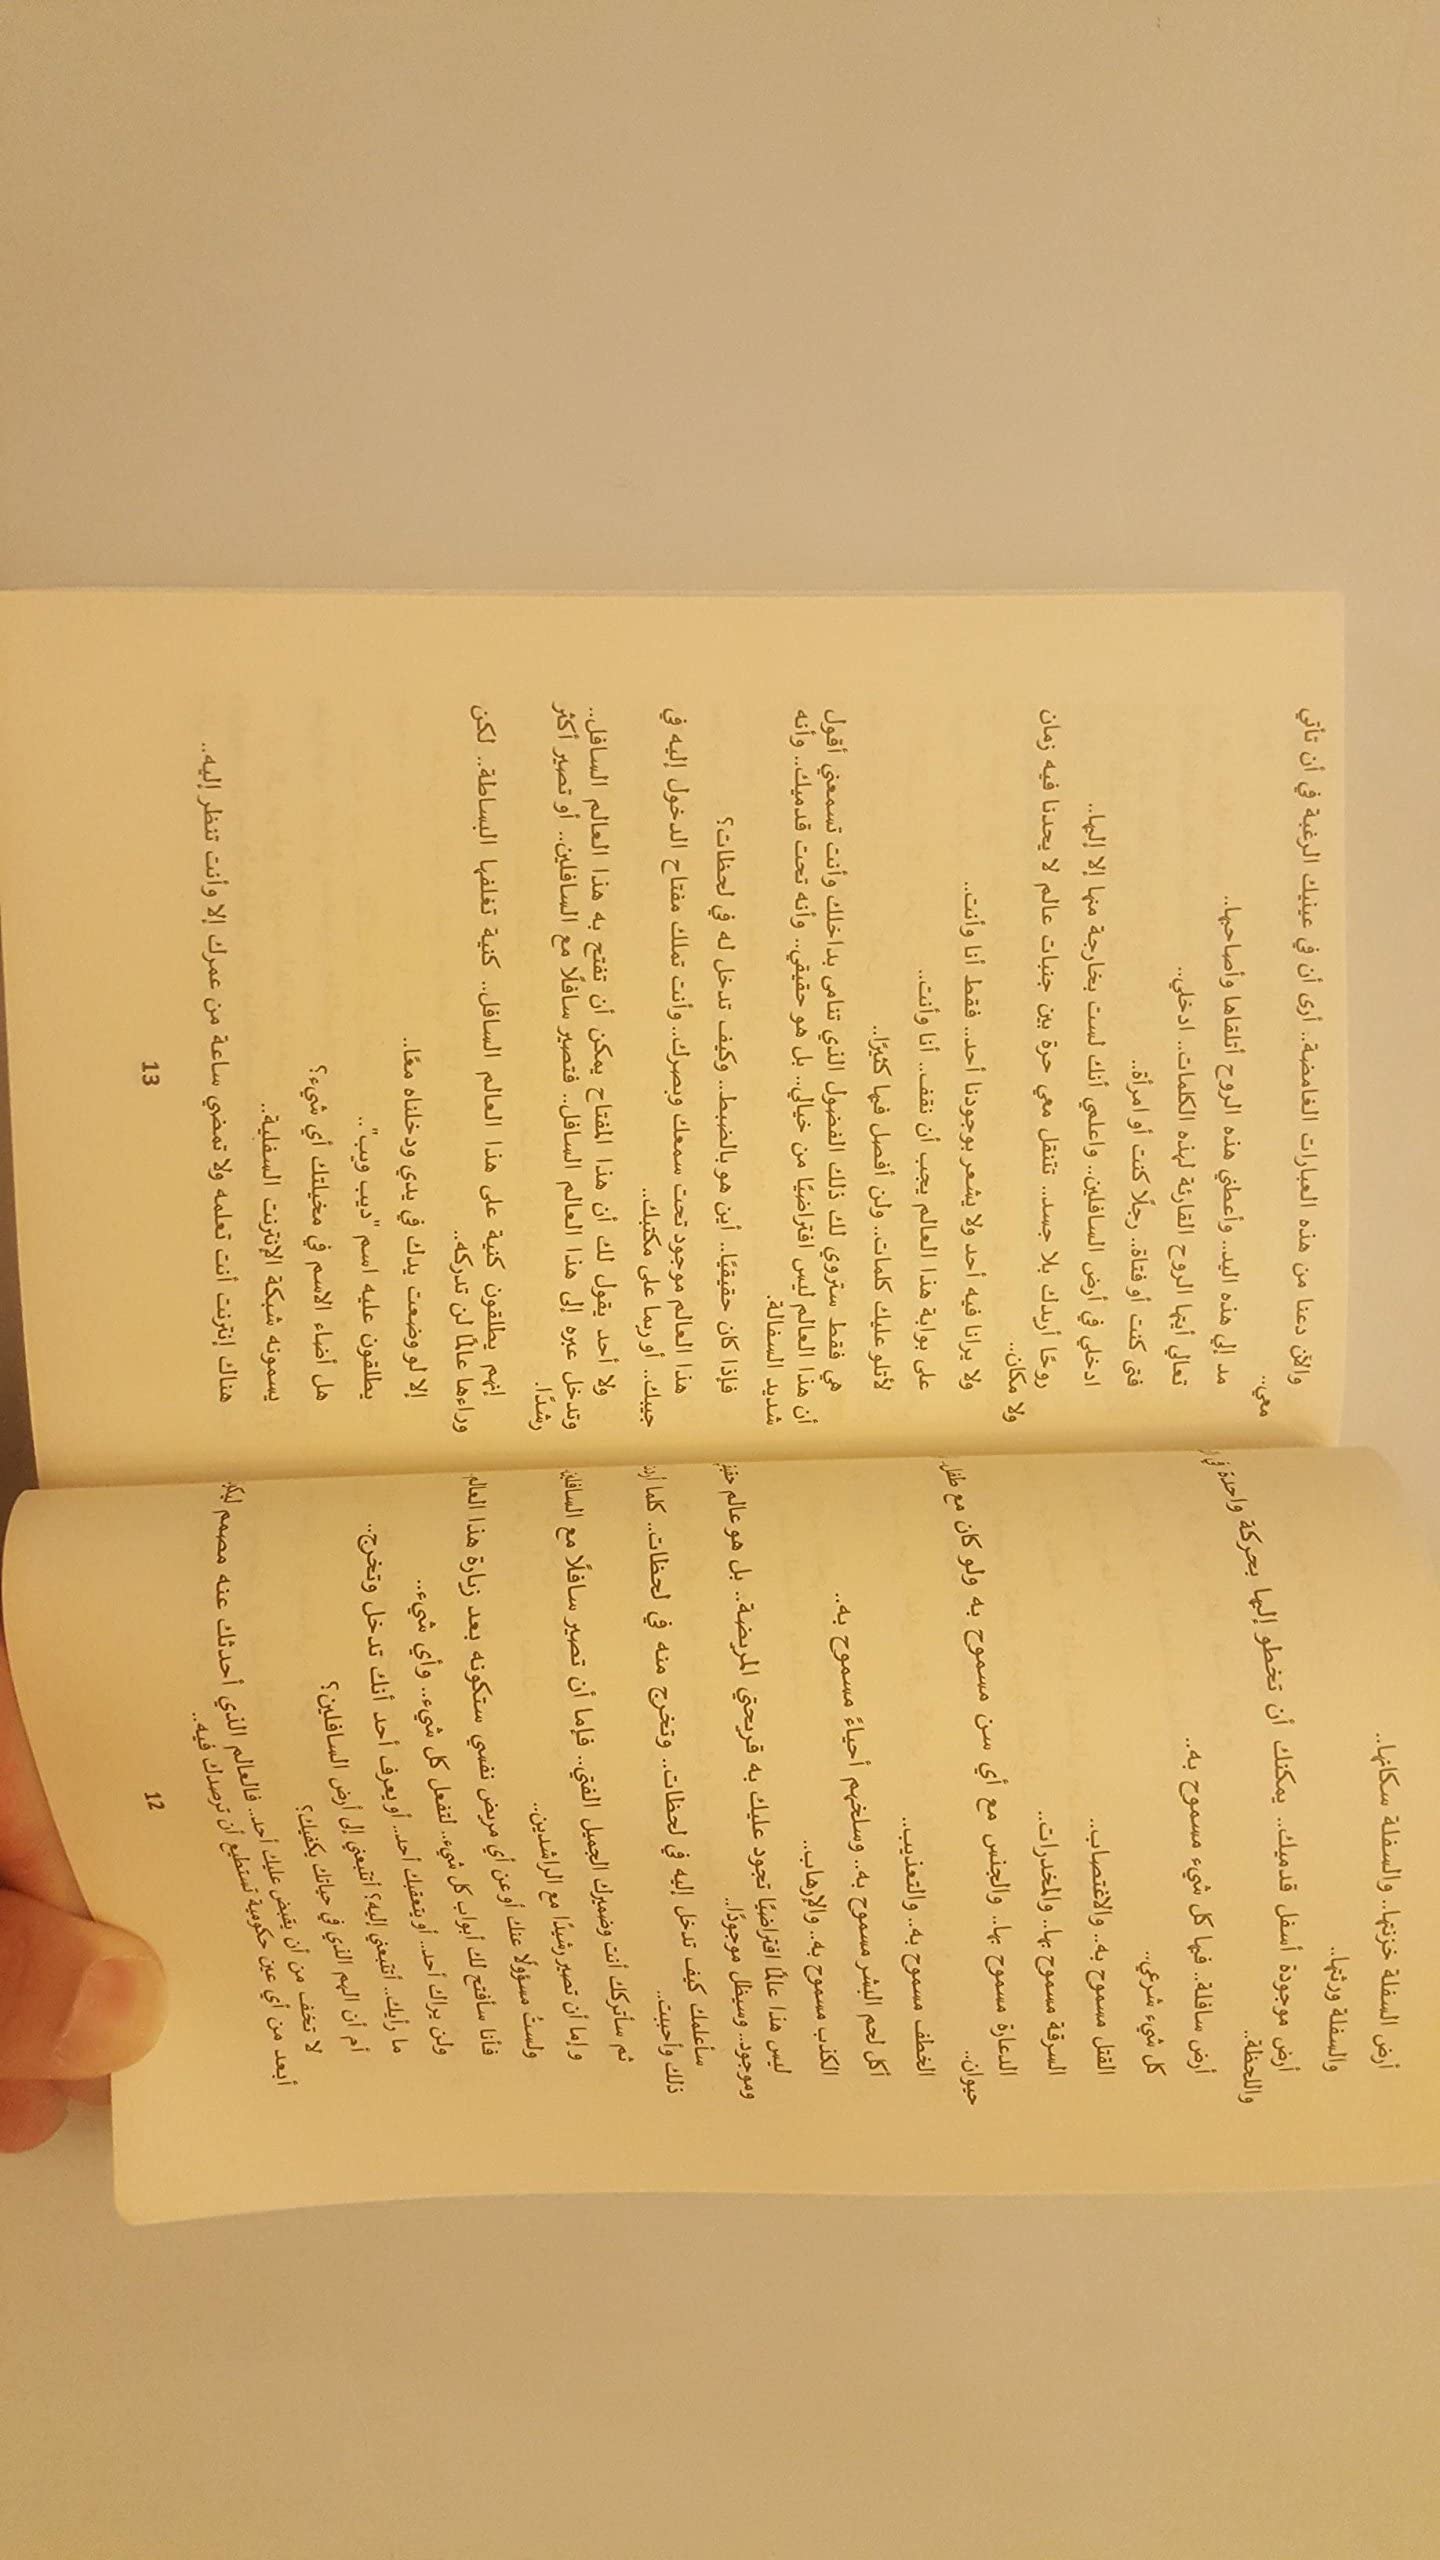 أرض السفلة خزنتها.. والسفلة سكانها..
والسفلة ورثتها..
أرض موجودة أسفل قدميك.. يمكنك أن تخطو إليها بحركة واحدة في
واللحظة..
أرض سافلة.. فيها كل شيء مسموح به..
كل شيء شرعي..
القتل مسموح به.. والاغتصاب..
السرقة مسموح بها.. والمخدرات..
الدعارة مسموح بها.. والجنس مع أي سن مسموح به ولو كان مع طفل
حيوان..
الخطف مسموح به.. والتعذيب..
أكل لحم البشر مسموح به.. وسلخهم أحياءً مسموح به..
الكذب مسموح به.. والإرهاب..
ليس هذا عالمًا افتراضيًا تجود عليك به قريحتي المريضة.. بل هو عالم
وموجود.. وسيظل موجودًا..
سأعلمك كيف تدخل إليه في لحظات.. وتخرج منه في لحظات.. كلما
ذلك وأحببت..
ثم سأتركك أنت وضميرك الجميل الفتي.. فإما أن تصير سافلًا مع
وإما أن تصير رشيدًا مع الراشدين..
ولستُ مسؤولًا عنك أو عن أي مريض نفسي ستكونه بعد زيارة هذا العالم
فأنا سأفتح لك أبواب كل شيء.. لتفعل كل شيء.. وأي شيء..
ولن يراك أحد.. أو يتعقبك أحد.. أو يعرف أحد أنك تدخل وتخرج..
ما رأيك.. أتتبعني إليه؟ أتتبعني إلى أرض السافلين؟
أم أن الهم الذي في حياتك يكفيك؟
لا تخف من أن يقبض عليك أحد.. فالعالم الذي أحدثك عنه مصمم
أبعد من أي عين حكومية تستطيع أن ترصدك فيه..
12
والآن دعنا من هذه العبارات الغامضة.. أرى أن في عينيك الرغبة في أن تأتي
معي..
مد إلي هذه اليد.. وأعطني هذه الروح أتلقاها وأصاحبها..
تعالي أيتها الروح القارئة لهذه الكلمات.. ادخلي..
فتى كنت أو فتاة.. رجلًا كنت أو امرأة..
ادخلي في أرض السافلين.. واعلمي أنك لست بخارجة منها إلا إليها..
روحًا أريدك بلا جسد.. تتنقل معي حرة بين جنبات عالم لا يحدنا فيه زمان
ولا مكان..
ولا يرانا فيه أحد ولا يشعر بوجودنا أحد.. فقط أنا وأنت..
على بوابة هذا العالم يجب أن نقف.. أنا وأنت..
لأتلو عليك كلمات.. ولن أفصل فيها كثيرًا..
هي فقط ستروي لك ذلك الفضول الذي تنامى بداخلك وأنت تسمعني أقول
أن هذا العالم ليس افتراضيًا من خيالي.. بل هو حقيقي.. وأنه تحت قدميك.. وأنه
شديد السفالة.
فإذا كان حقيقيًا.. أين هو بالضبط.. وكيف تدخل له في لحظات؟
هذا العالم موجود تحت سمعك وبصرك.. وأنت تملك مفتاح الدخول إليه في
جيبك.. أو ربما على مكتبك..
ولا أحد يقول لك أن هذا المفتاح يمكن أن تفتح به هذا العالم السافل..
وتدخل عبره إلى هذا العالم السافل.. فتصير سافلًا مع السافلين.. أو تصير أكثر
رشدًا.
إنهم يطلقون كنية على هذا العالم السافل.. كنية تغلفها البساطة.. لكن
وراءها عالمًا لن تدركه..
إلا لو وضعت يدك في يدي ودخلناه معًا..
يطلقون عليه اسم "ديب ويب"..
هل أضاء الاسم في مخيلتك أي شيء؟
يسمونه شبكة الإنترنت السفلية..
هناك إنترنت أنت تعلمه ولا تمضي ساعة من عمرك إلا وأنت تنظر إليه..
13